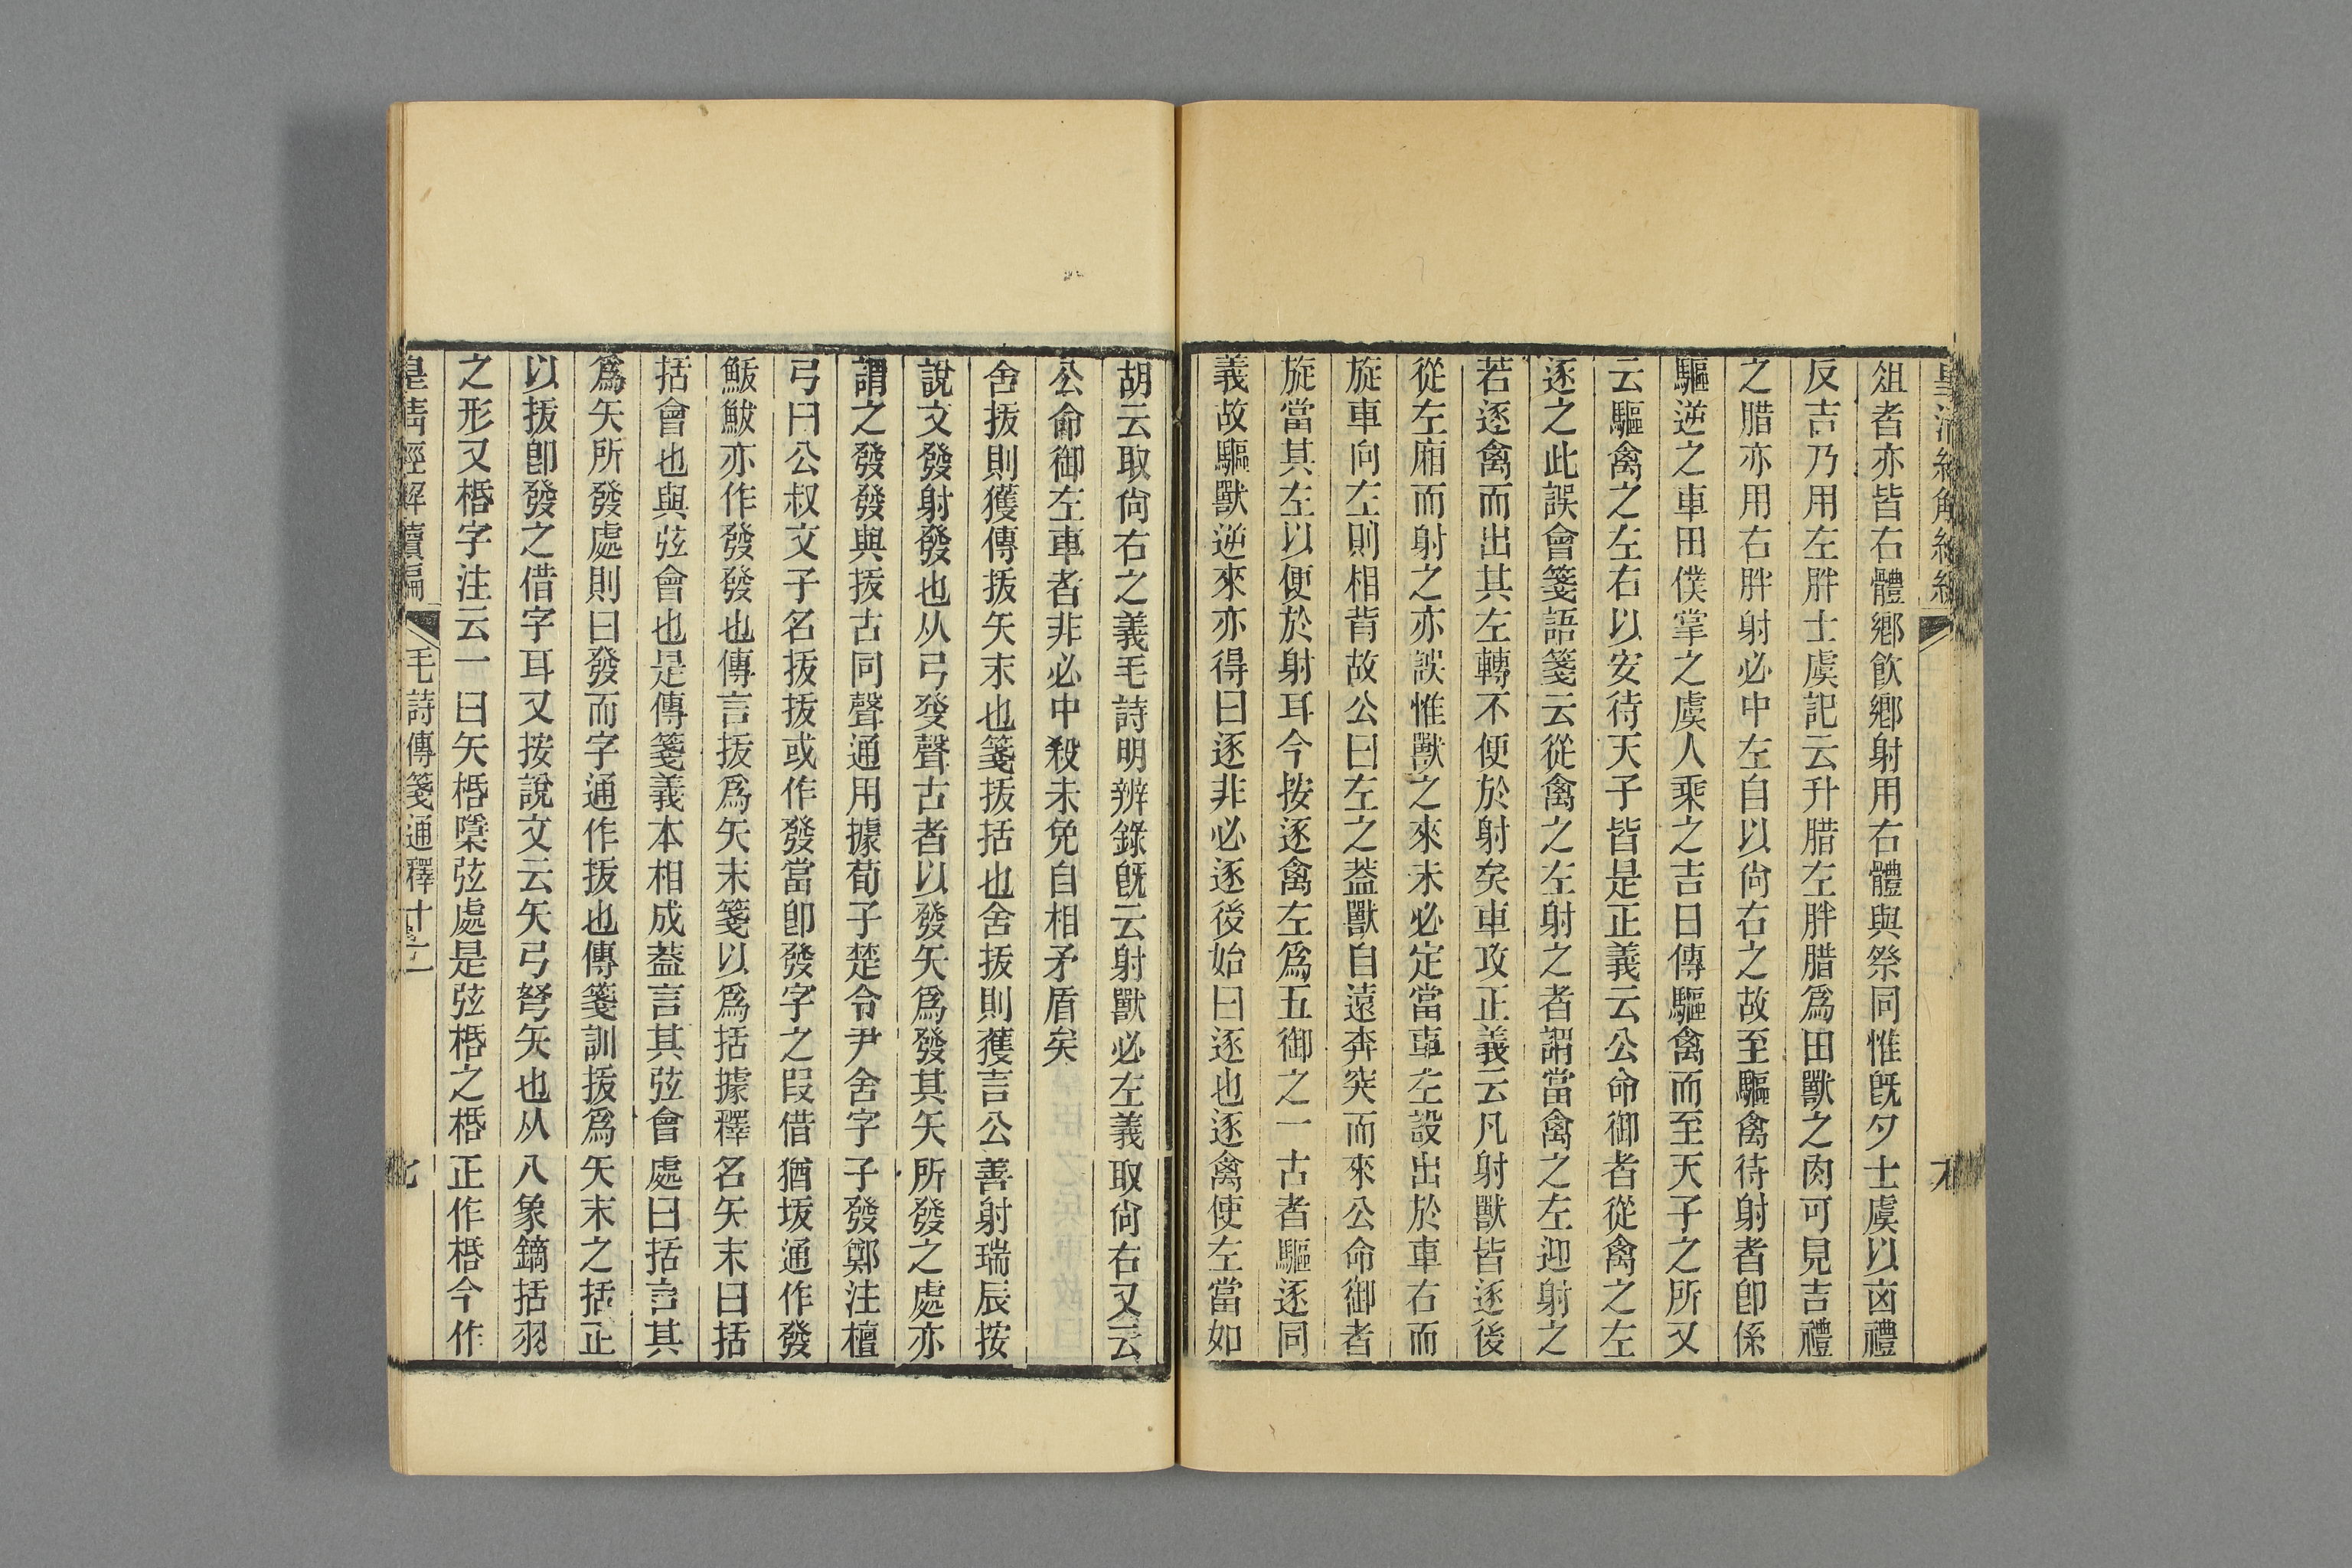 俎者亦皆右體鄉飲鄉射用右體與祭同惟旣夕士虞以㐫禮
反吉乃用左胖士虞記云升腊左胖腊爲田獸之肉可見吉禮
之腊亦用右胖射必中左自以尙右之故至驅禽待射者卽係
驅逆之車田僕掌之虞人乘之吉日傳驅禽而至天子之所又
云驅禽之左右以安待天子皆是正義云公命御者從禽之左
逐之此誤會箋語箋云從禽之左射之者謂當禽之左迎射之
若逐禽而出其左轉不便於射矣車攻正義云凡射獸皆逐後
從左廂而射之亦誤惟獸之來未必定當車左設出於車右而
旋車向左則相背故公曰左之蓋獸自遠奔突而來公命御者
旋當其左以便於射耳今按逐禽左爲五御之一古者驅逐同
義故驅獸逆來亦得曰逐非必逐後始曰逐也逐禽使左當如
胡云取尙右之義毛詩明辨錄旣云射獸必左義取尙右又云
公命御左車者非必中殺未免自相矛盾矣
舍拔則獲傳拔矢末也箋拔括也舍拔則獲言公善射瑞辰按
說文發射發也从弓癹聲古者以發矢爲發其矢所發之處亦
謂之發發與拔古同聲通用據荀子楚令尹舍字子發鄭注檀
弓曰公叔文子名拔拔或作發當卽發字之叚借猶坺通作發
鱍鮁亦作發發也傳言拔爲矢末箋以爲括據釋名矢末曰括
括會也與弦會也是傳箋義本相成蓋言其弦會處曰括言其
爲矢所發處則曰發而字通作拔也傳箋訓拔爲矢末之括正
以拔卽發之借字耳又按說文云矢弓弩矢也从入象鏑括羽
之形又桰字注云一曰矢桰檃弦處是弦桰之桰正作桰今作
皇清經解續編 毛詩傳箋通釋十二